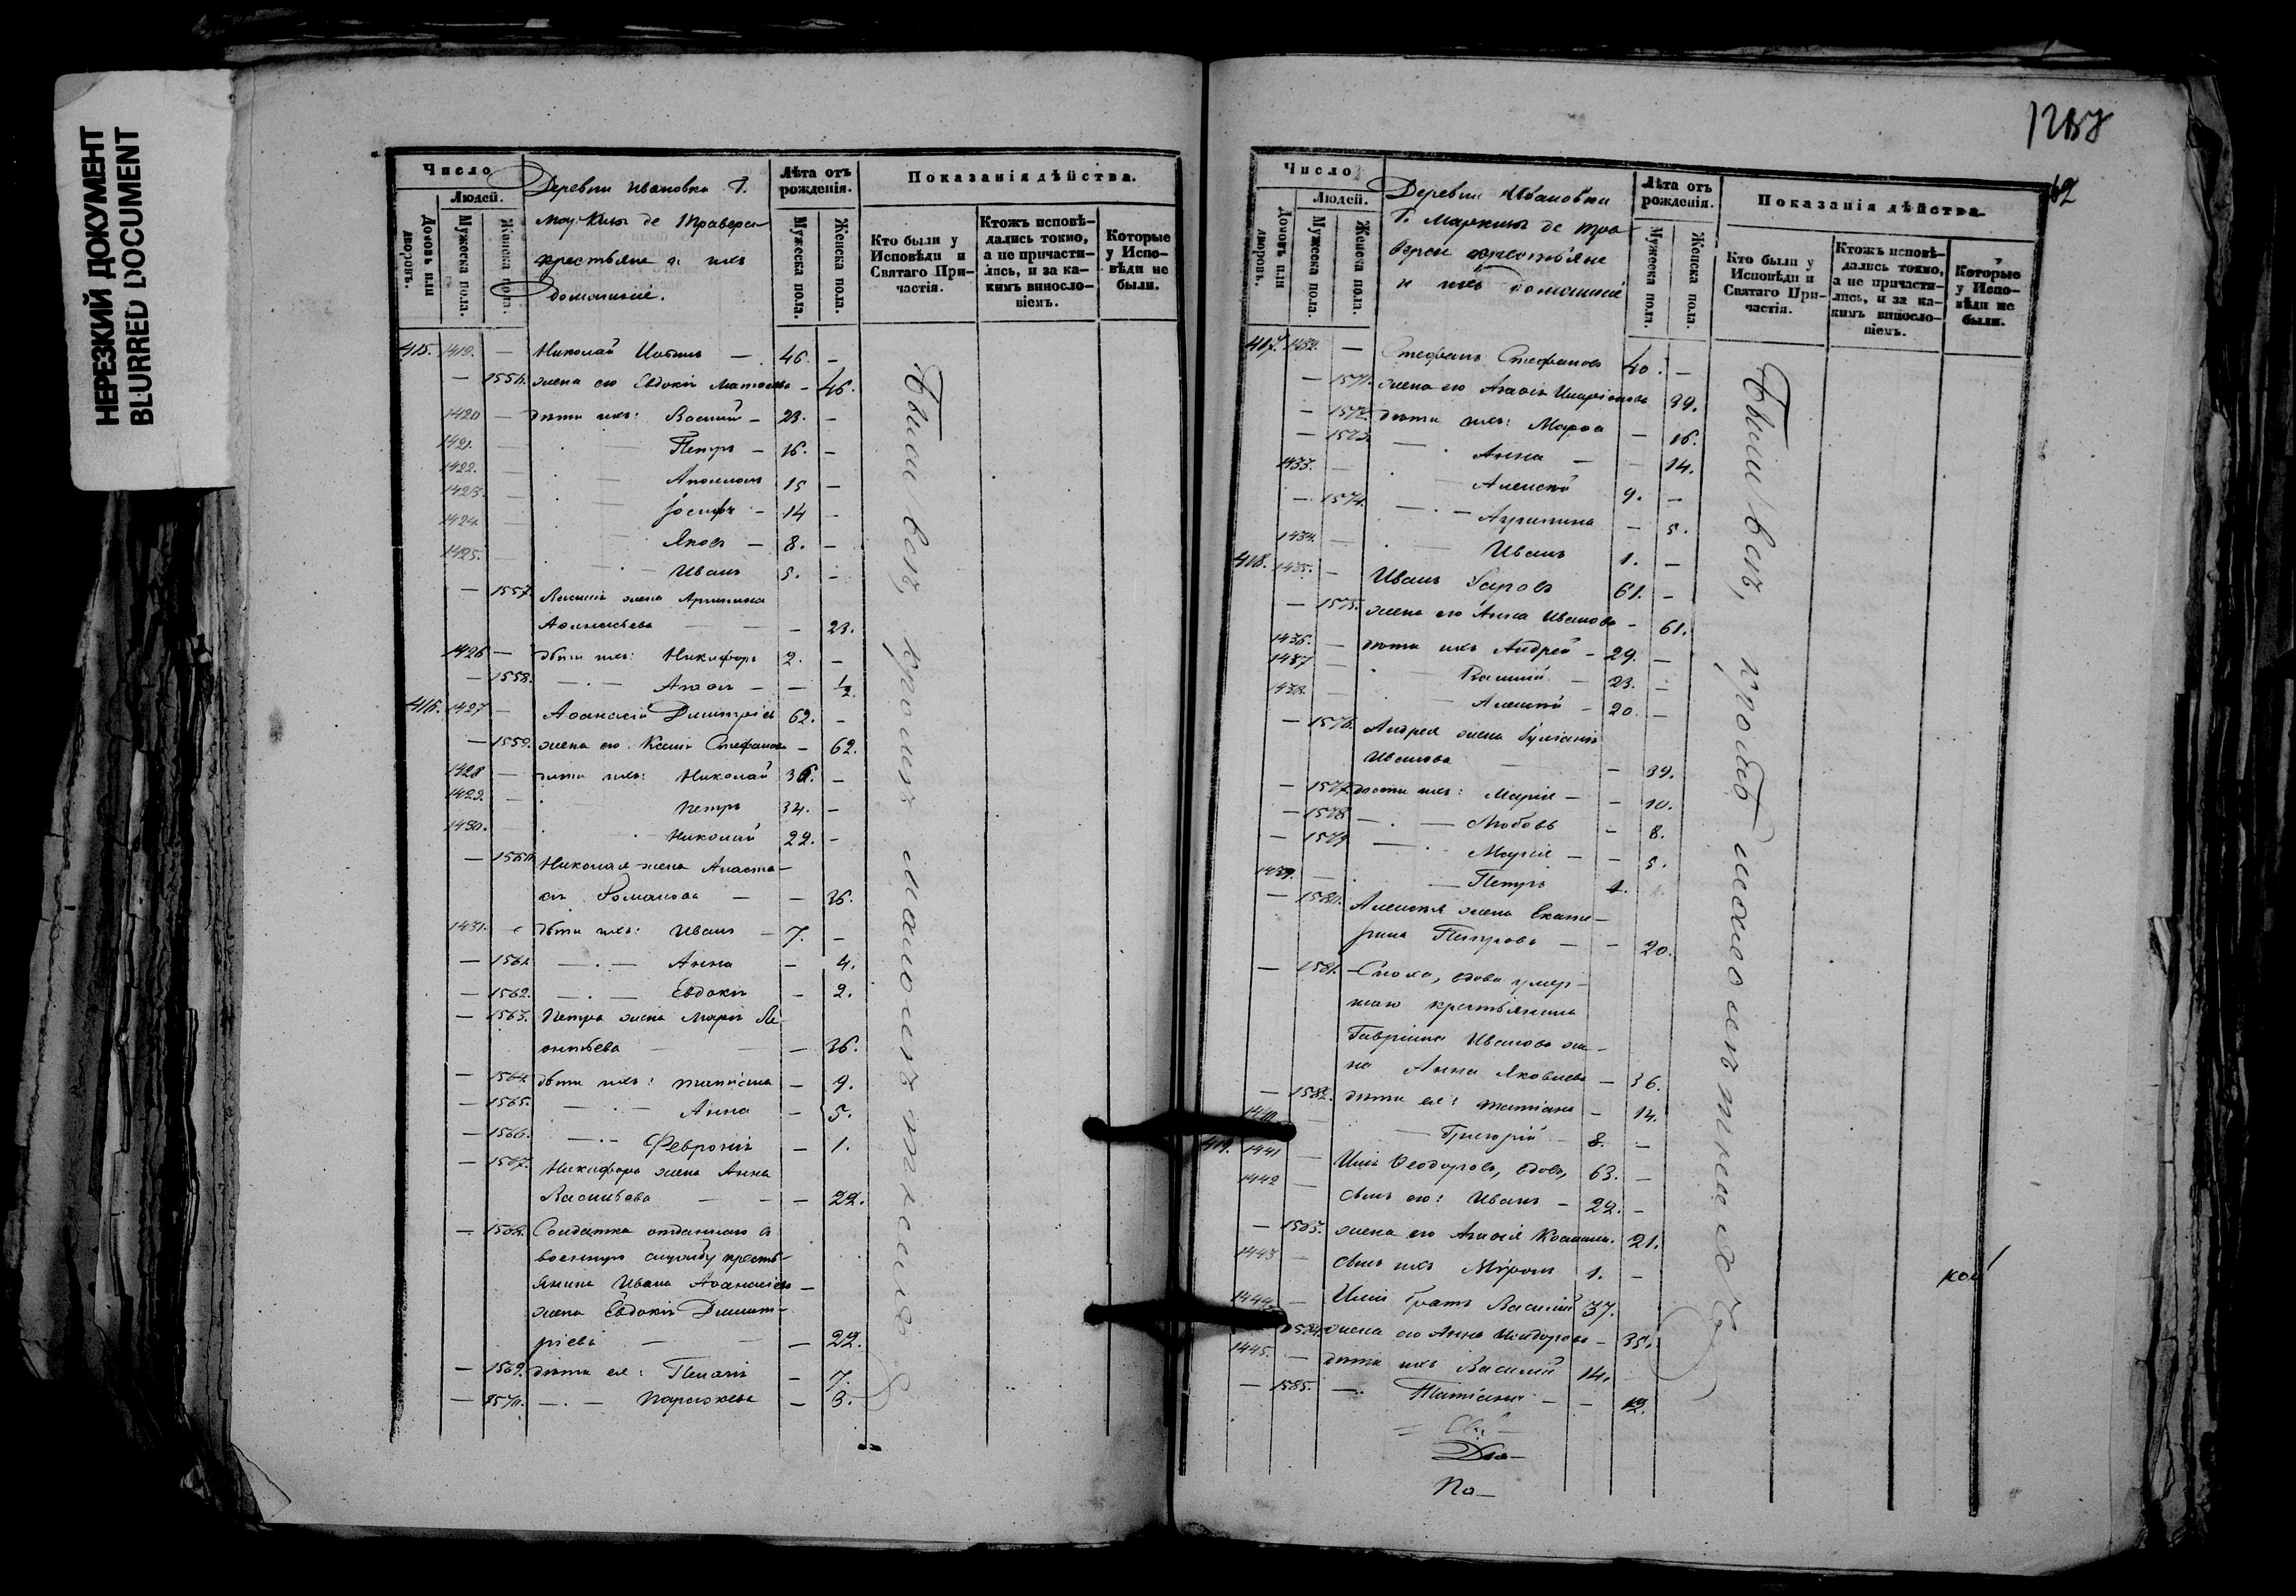 НЕРЕЗКИЙ ДОКУМЕНТ
BLURRED DOCUMENT
Число
Людей.
Домовъ или дворовъ.
Мужеска пола.
Женска пола.
Деревни Ивановки Г.
де Траверси
крестьяне и ихъ
домашніе.
Лѣта отъ рожденія.
Мужеска пола.
Женска пола.
Показанія дѣйства.
Кто были у Исповѣди и Святаго Причастія.
Ктожъ исповѣдались токмо, а не причастились, и за какимъ винословіемъ.
Которые у Исповѣди не были.
415. 1419. — Николай — 46. —
— 1556. жена его Евдокія — 46.
1420 — дѣти ихъ: Василій — 23. —
1421. — Петръ — 16. —
1422. — 15 —
1423. — Іосифъ — 14 —
1424 — Яковъ — 8. —
1425. — Иванъ 5. —
— 1557. Василія жена Агрипина
Аѳанасьева — — 23.
1426 — дѣти ихъ: Никифоръ 2. —
— 1558. — Агаѳія — — 1/2.
416. 1427 — Аѳанасій Димитріевъ 62. —
— 1559. жена его Ксенія Стефанова — 62.
1428 — дѣти ихъ: Николай 36. —
1429. — Петръ 34. —
1430. — Николай 22. —
— 1560. Николая жена Анаста-
сія Романова — — 36.
1431. — дѣти ихъ: Иванъ — 7. —
— 1561. — Анна — 4.
— 1562. — Евдокія — 2.
— 1563. Петра жена Марія Ле-
онтьева — — 36.
— 1564. дѣти ихъ: Татіана — 9.
— 1565. — Анна — 5.
— 1566. — Февронія — 1.
— 1567. Никифора жена Анна
Васильева — — 22.
— 1568. Солдатка отданнаго въ
военную службу кресть-
янина Ивана Аѳанасіева —
жена Евдокія Димит-
ріева — — 22.
— 1569. дѣти ея: Пелагія — 7.
— 1570. — Параскева — 3.
Были всѣ, кромѣ малолѣтнихъ
1258
62
Число
Людей.
Домовъ или дворовъ.
Мужеска пола.
Женска пола.
Деревни Ивановки
Г. Маркиза де Тра-
верси крестьяне
и ихъ домашніе
Лѣта отъ рожденія.
Мужеска пола.
Женска пола.
Показанія дѣйства.
Кто были у Исповѣди и Святаго Причастія.
Ктожъ исповѣдались токмо, а не причастились, и за какимъ винословіемъ.
Которые у Исповѣди не были.
417. 1432. — Стефанъ Стефановъ 40. —
— 1571. жена его Агаѳія Иларіонова 39.
— 1572. дѣти ихъ: Марѳа — 16.
— 1573. — Анна — — 14.
1433. — Алексѣй 9. —
— 1574. — Агрипина — 5.
1434. — Иванъ 1. —
418. 1435. — Иванъ 61. —
— 1575. жена его Анна Иванова — 61.
1436. — дѣти ихъ Андрей — 29. —
1437 — Василій — 23. —
1438. — Алексѣй — 20. —
— 1576. Андрея жена Іуліанія
Иванова — — 39.
— 1577. дѣти ихъ: Марія — — 10.
— 1578 — Любовь — 8.
— 1579 — Марія — — 5.
1439. — Петръ 1.
— 1580. Алексѣя жена Екате-
рина Петрова — — 20.
— 1581. Сноха, вдова умер-
шаго крестьянина
Гавріила Иванова же-
на Анна Яковлева — 36.
— 1582. дѣти ея: Татіана — 14.
1440 — Григорій — 8. —
419. 1441 — Илія Ѳеодоровъ, вдовъ, 63. —
1442 — сынъ его: Иванъ — 22. —
— 1583. жена его Агаѳія 21.
1443 — сынъ ихъ Миронъ 1. —
1444. — Иліи братъ Василій 37.
1584. жена его Анна Исидорова — 35.
1445. — дѣти ихъ Василій 14.
— 1585. — Татіана — — 12.
Дво-
По-
Были всѣ, кромѣ малолѣтнихъ
кой